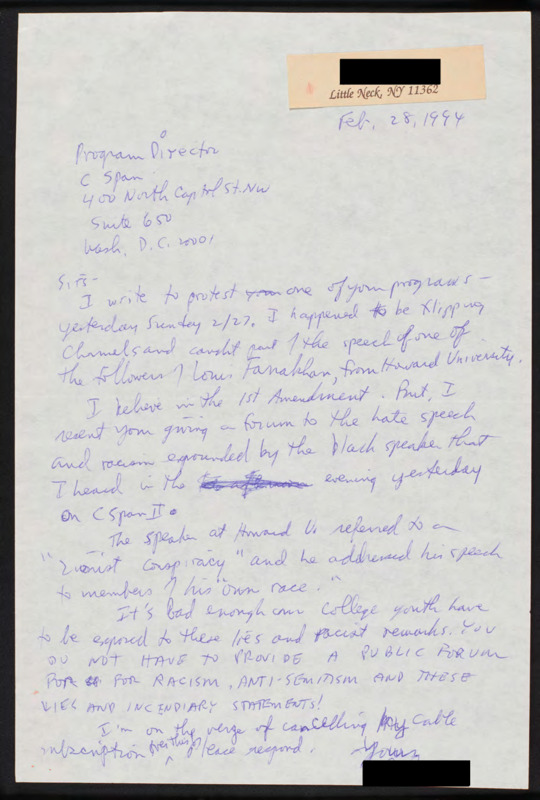 Little Neck, NY 11362
Feb. 28, 1994
Program Director
C Span
400 North Capitol St. NW
Suite 650
Wash, D.C. 20001
Sirs-
I write to protest one of your programs -
yesterday Sunday 2/27. I happened to be flipping
channels and caught part of the speech of one of
the followers of Louis Farrakhan, from Howard University.
I believe in the 1st Amendment. But, I
resent your giving a forum to the hate speech
and racism expounded by the black speaker that
I heard in the evening yesterday
on C Span II.
The speaker at Howard U. referred to a
"Zionist conspiracy" and he addressed his speech
to members of his "own race."
It's bad enough our college youth have
to be exposed to these lies and racist remarks. YOU
DO NOT HAVE TO PROVIDE A PUBLIC FORUM
FOR RACISM, ANTI-SEMITISM AND THESE
LIES AND INCENDIARY STATEMENTS!
I'm on the verge of cancelling my cable
subscription over this. Please respond.
Yours